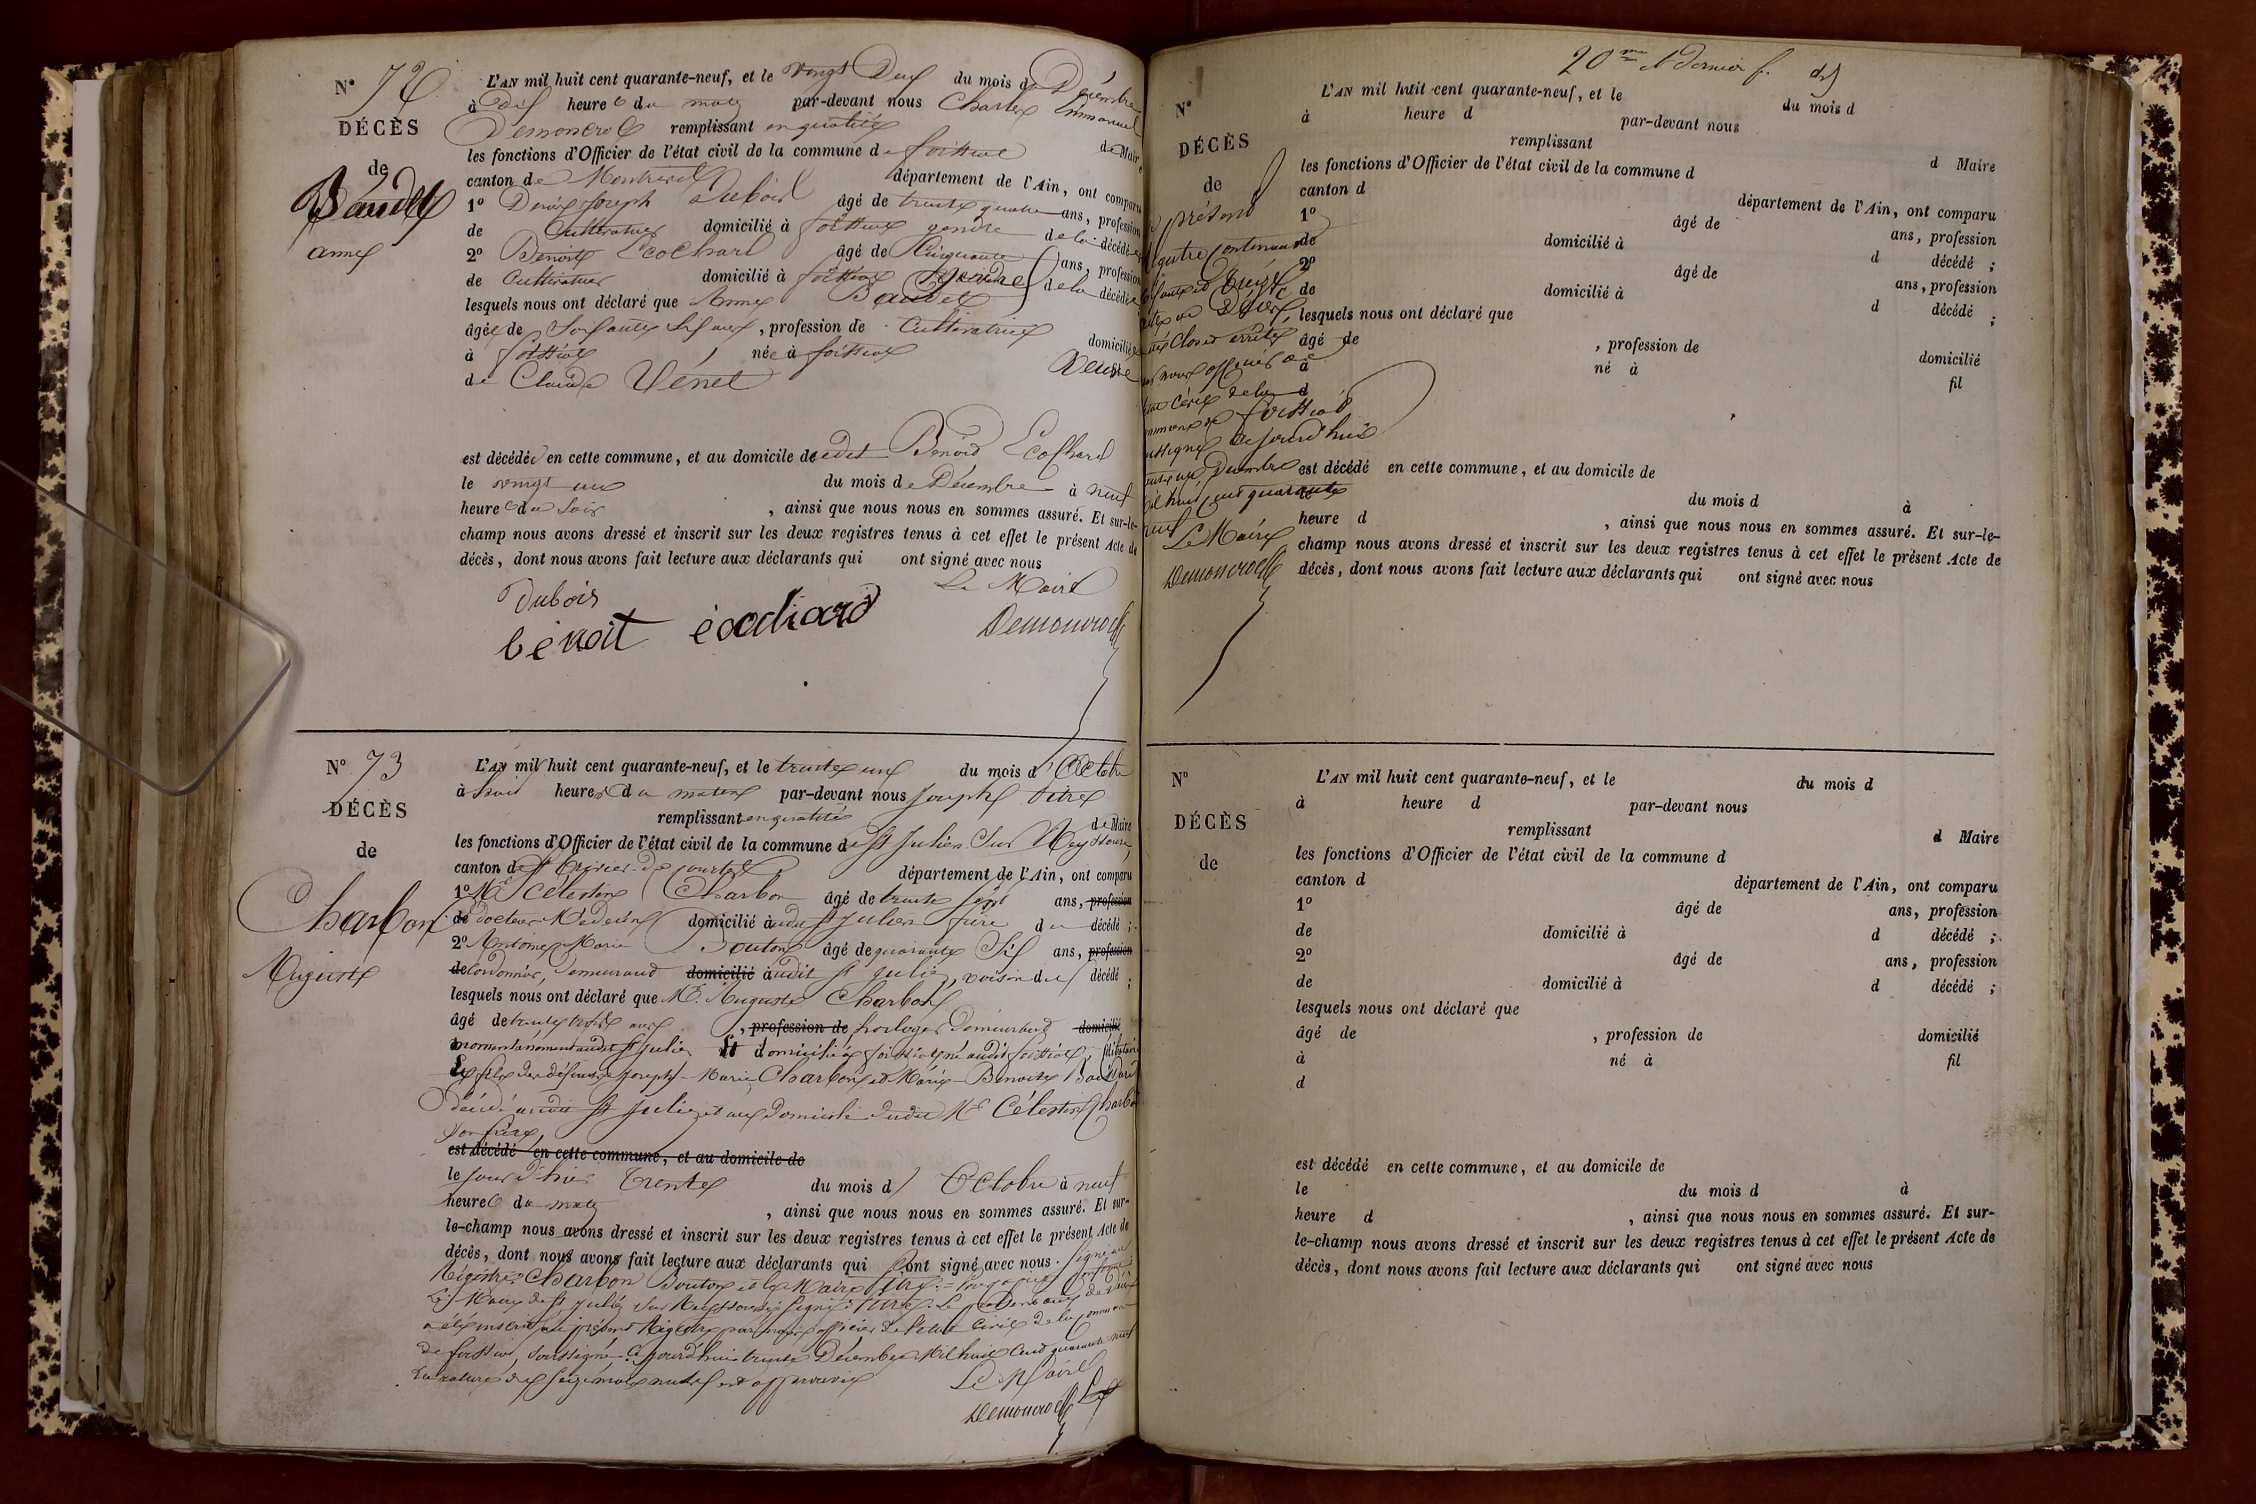 N° 72
DÉCÈS
de
Baudet
anne
L'AN mil huit cent quarante-neuf, et le vingt Deux du mois de Décembre
à dix heures du matin par-devant nous Charles Emmanuel
Demoncroc remplissant en qualité
de Maire
les fonctions d'Officier de l'état civil de la commune de foissiat
canton de Montrevel département de l'Ain, ont comparu
1° Denis Joseph Dubois âgé de trente quatre ans, profession
de Cultivateur domicilié à foissiat gendre de la décédée
2° Benoit Ecochard âgé de Cinquante ans, profession
de Cultivateur domicilié à foissiat gendre de la décédée
lesquels nous ont déclaré que Anne Baudet
âgée de Soixante dix ans, profession de Cultivatrice
domiciliée
à foissiat née à foissiat
Veuve
de Claude Venet
est décédée en cette commune, et au domicile dudit Benoit Ecochard
le vingt un du mois de Décembre à neuf
heures du soir, ainsi que nous nous en sommes assuré. Et sur-le-
champ nous avons dressé et inscrit sur les deux registres tenus à cet effet le présent Acte de
décès, dont nous avons fait lecture aux déclarants qui ont signé avec nous
Le Maire
Dubois
bénoit écochard
Demoncroc
N° 73
DÉCÈS
de
Charbon
Auguste
L'AN mil huit cent quarante-neuf, et le trente un du mois d'Octobre
à huit heures du matin par-devant nous Joseph
remplissant en qualité
de Maire
les fonctions d'Officier de l'état civil de la commune de St Julien Sur Reyssouze,
canton de St Trivier de Courtes département de l'Ain, ont comparu
1° Mr Célestin Charbon âgé de trente sept ans, profession
de docteur Médecin domicilié audit St Julien frère du décédé ;
2° Antoine Marie Bouton âgé de quarante Six ans, profession
de Cordonnier, Demeurant domicilié audit St Julien, voisin du décédé ;
lesquels nous ont déclaré que Mr Auguste Charbon
âgé de trente ans, profession de horloger Demeurant domicilié
momentanément audit St Julien et domicilié à foissiat né audit foissiat, célibataire
fils des défunts Joseph-Marie Charbon et Marie-Benoite
décédé audit St Julien et au Domicile dudit Mr Célestin Charbon
son frère,
est décédé en cette commune, et au domicile de
le jour d'hier trente du mois d'Octobre à neuf
heures du matin, ainsi que nous nous en sommes assuré. Et sur-
le-champ nous avons dressé et inscrit sur les deux registres tenus à cet effet le présent Acte de
décès, dont nous avons fait lecture aux déclarants qui ont signé avec nous. Signé au
Régistre: Charbon Bouton et le Maire
Le Maire de St Julien Sur Reyssouze signé: Le
a été inscrit au présent Régistre par nous officier de l'état Civil de la Commune
de foissiat, soussigné Ce jourd'hui trente Décembre Mil huit Cent quarante neuf
La rature de seize mots nuls est approuvée
Le Maire
Demoncroc
20me et dernier f. d
N°
DÉCÈS
de
Le présent
Registre contenant
Clos et arrêté
par nous officier de
l'état Civil de la
commune de foissiat
soussigné Ce jourd'hui
trente un Décembre
mil huit cent quarante
neuf
Le Maire
Demoncroc
L'AN mil huit cent quarante-neuf, et le du mois d
à heure d par-devant nous
remplissant
d Maire
les fonctions d'Officier de l'état civil de la commune d
canton d département de l'Ain, ont comparu
1° âgé de ans, profession
de domicilié à d décédé ;
2° âgé de ans, profession
de domicilié à d décédé ;
lesquels nous ont déclaré que
âgé de , profession de domicilié
à né à fil
d
est décédé en cette commune, et au domicile de
le du mois d à
heure d , ainsi que nous nous en sommes assuré. Et sur-le-
champ nous avons dressé et inscrit sur les deux registres tenus à cet effet le présent Acte de
décès, dont nous avons fait lecture aux déclarants qui ont signé avec nous
N°
DÉCÈS
de
L'AN mil huit cent quarante-neuf, et le du mois d
à heure d par-devant nous
remplissant
d Maire
les fonctions d'Officier de l'état civil de la commune d
canton d département de l'Ain, ont comparu
1° âgé de ans, profession
de domicilié à d décédé ;
2° âgé de ans, profession
de domicilié à d décédé ;
lesquels nous ont déclaré que
âgé de , profession de domicilié
à né à fil
d
est décédé en cette commune, et au domicile de
le du mois d à
heure d , ainsi que nous nous en sommes assuré. Et sur-
le-champ nous avons dressé et inscrit sur les deux registres tenus à cet effet le présent Acte de
décès, dont nous avons fait lecture aux déclarants qui ont signé avec nous